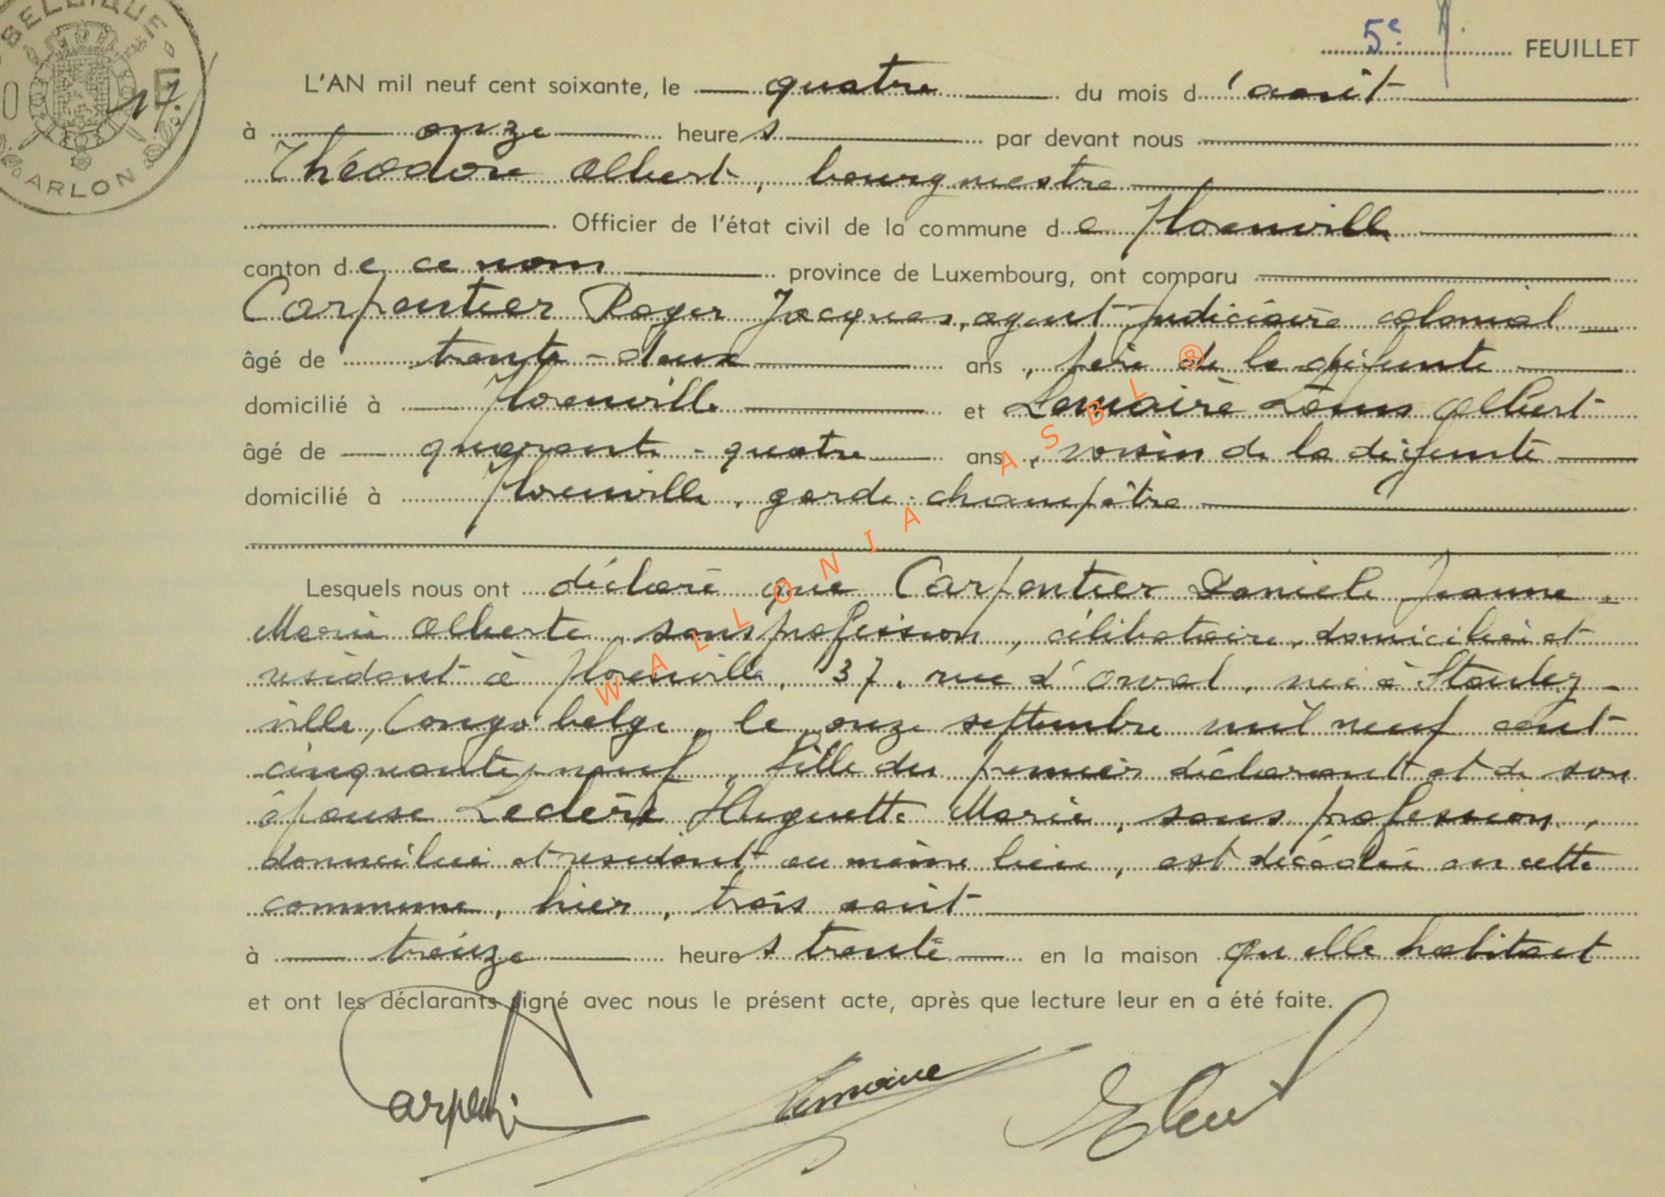 BELGIQUE
ARLON
17.
5e FEUILLET
L'AN mil neuf cent soixante, le quatre du mois d'août
à onze heures par devant nous
Théodore Albert, bourgmestre
Officier de l'état civil de la commune de Florenville
canton de ce nom province de Luxembourg, ont comparu
Carpentier Roger Jacques, agent judiciaire colonial
âgé de trente-deux ans, père de la défunte
domicilié à Florenville et Lemaire Louis Albert
âgé de quarante-quatre ans, voisin de la défunte
domicilié à Florenville, garde-champêtre
Lesquels nous ont déclaré que Carpentier Daniele Jeanne
Marie Alberte, sans profession, célibataire, domiciliée et
résidant à Florenville, 37, rue d'Orval, née à Stanley-
ville, Congo belge, le onze septembre mil neuf cent
cinquante-neuf, fille du premier déclarant et de son
épouse Leclère Huguette Marie, sans profession,
domiciliée et résidant au même lieu, est décédée en cette
commune, hier, trois août
à treize heures trente en la maison qu'elle habitait
et ont les déclarants signé avec nous le présent acte, après que lecture leur en a été faite.
Lemaire
WALLONIA ASBL ®